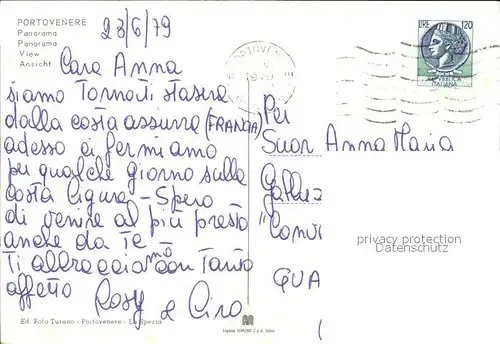 PORTOVENERE
Panorama
Panorama
View
Ansicht
23/6/79
LIRE 120
Cara Anna
siamo Tornati stasera
dalla costa assurra (FRANCIA)
adesso ci fermiamo
per qualche giorno sulla
costa ligure - Spero
di venire al più presto
anche da Te -
Ti abbracciamo con Tanto
affetto
Rosy e Ciro
Per
Suor Anna Maria
privacy protection
Datenschutz
GUA
Ed. Foto Turano - Portovenere - La Spezia